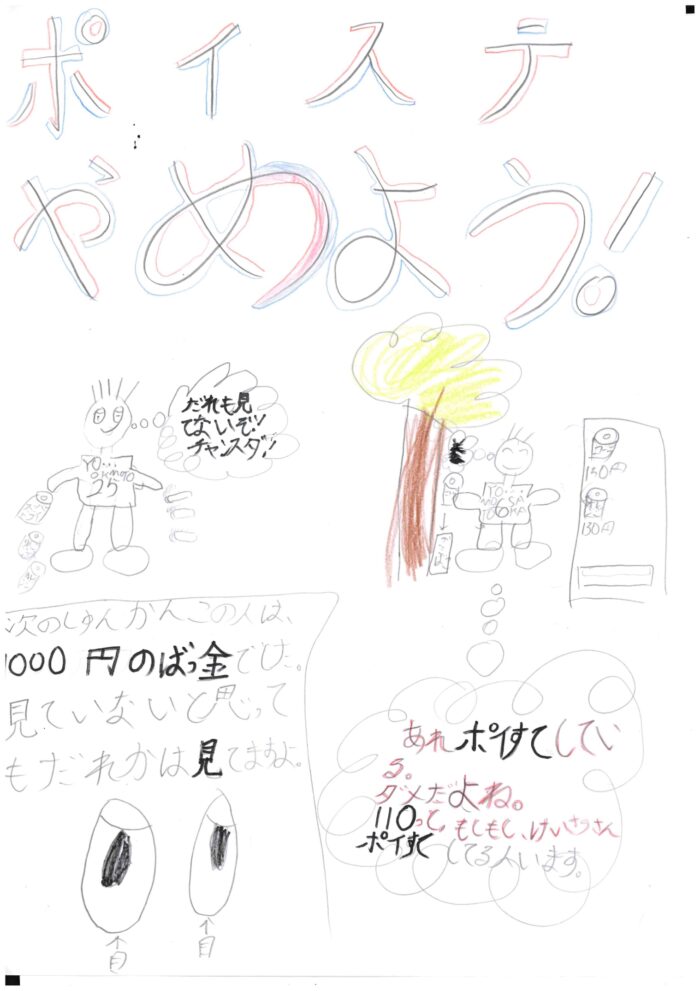 ポイステ
やめよう!
だれも見
てないぞ!!
チャンスダ!
YO...
OKAMOTO
25
YO...
6
130円
130円
次のしゅんかんこの人は、
1000円のばっ金でした。
見ていないと思って
もだれかは見てますよ。
目
目
あれポイすてしてい
る。
ダメだよね。
110って、もしもし、けいさつさん
ポイすてしてる人います。